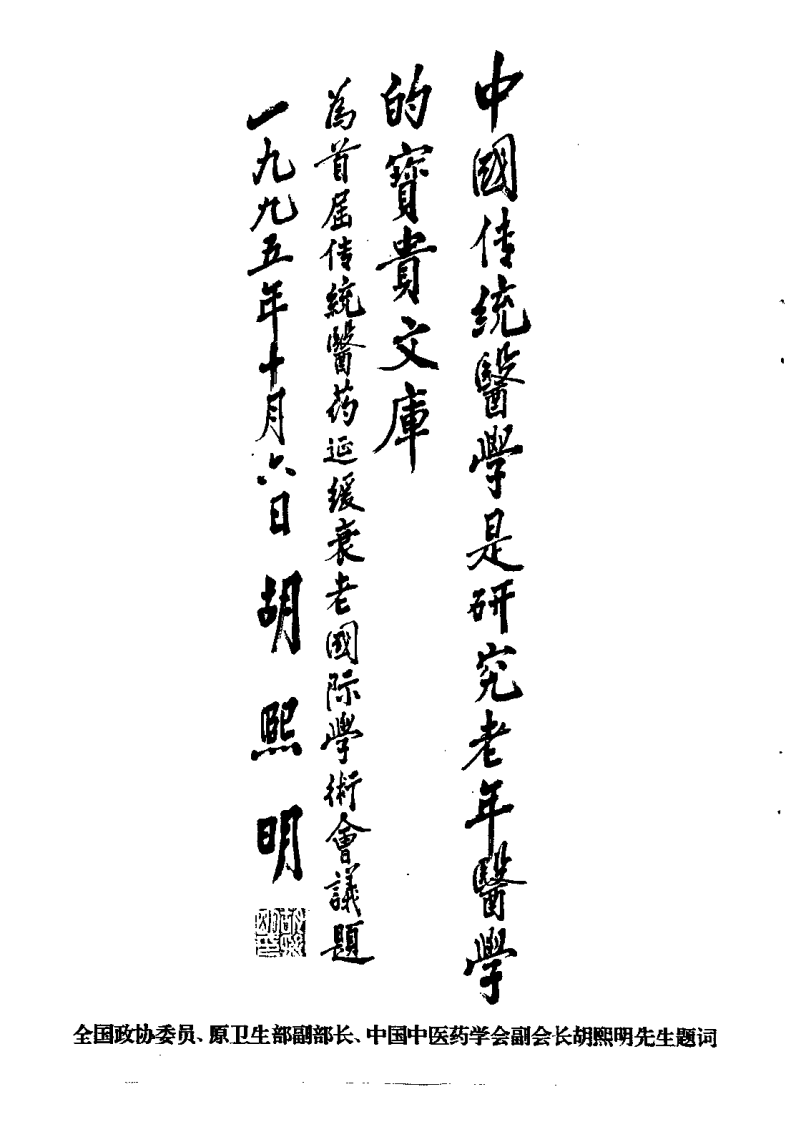 中國传统醫學是研究老年醫學
的寶貴文庫
為首屆传統醫药延缓衰老國际學術會議題
一九九五年十月六日 胡熙明
全国政协委员、原卫生部副部长、中国中医药学会副会长胡熙明先生题词